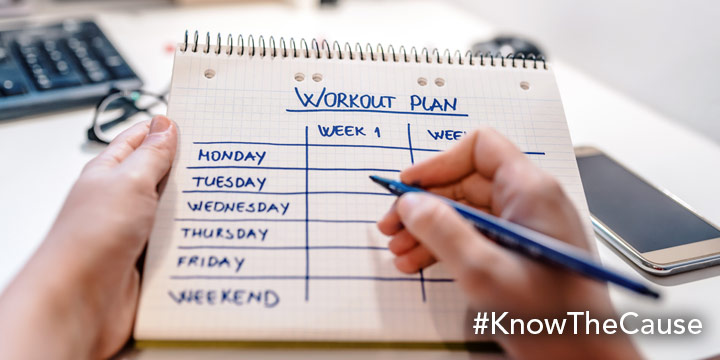 WORKOUT PLAN
WEEK 1 WEE
MONDAY
TUESDAY
WEDNESDAY
THURSDAY
FRIDAY
WEEKEND
#KnowTheCause